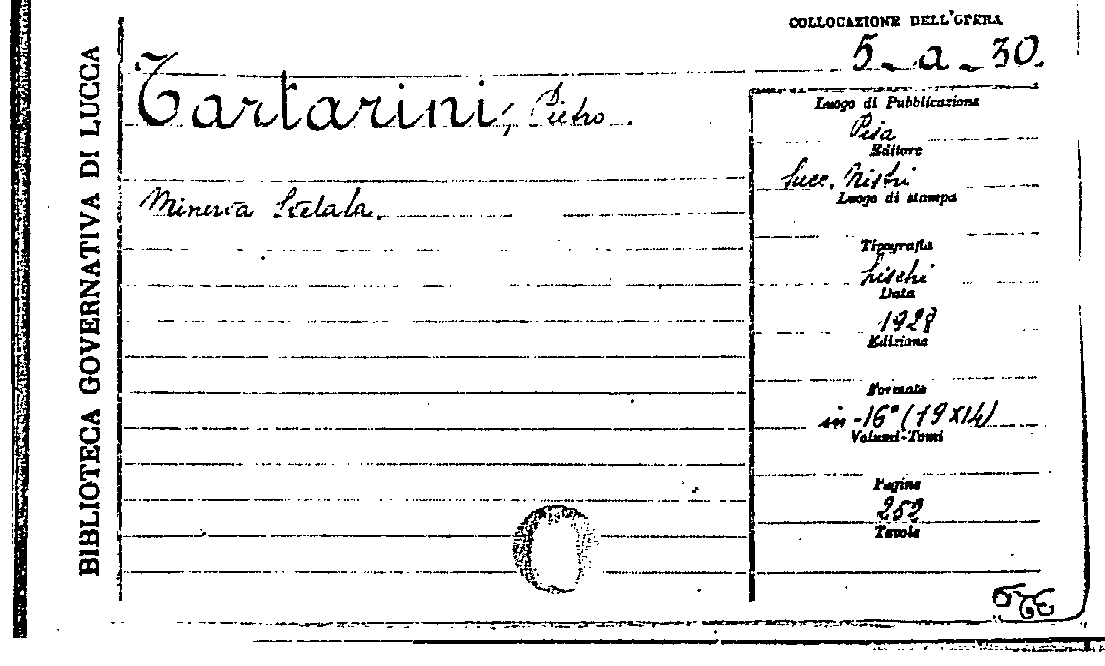 BIBLIOTECA GOVERNATIVA DI LUCCA
COLLOCAZIONE DELL'OPERA
5 - a - 30.
Tartarini, Pietro.
Minerva Stelata.
Luogo di Pubblicazione
Pisa
Editore
Succ. Nistri
Luogo di stampa
Tipografia
Lischi
Data
1928
Edizione
Formato
in-16° (19x14)
Volumi-Tomi
Pagine
252
Tavole